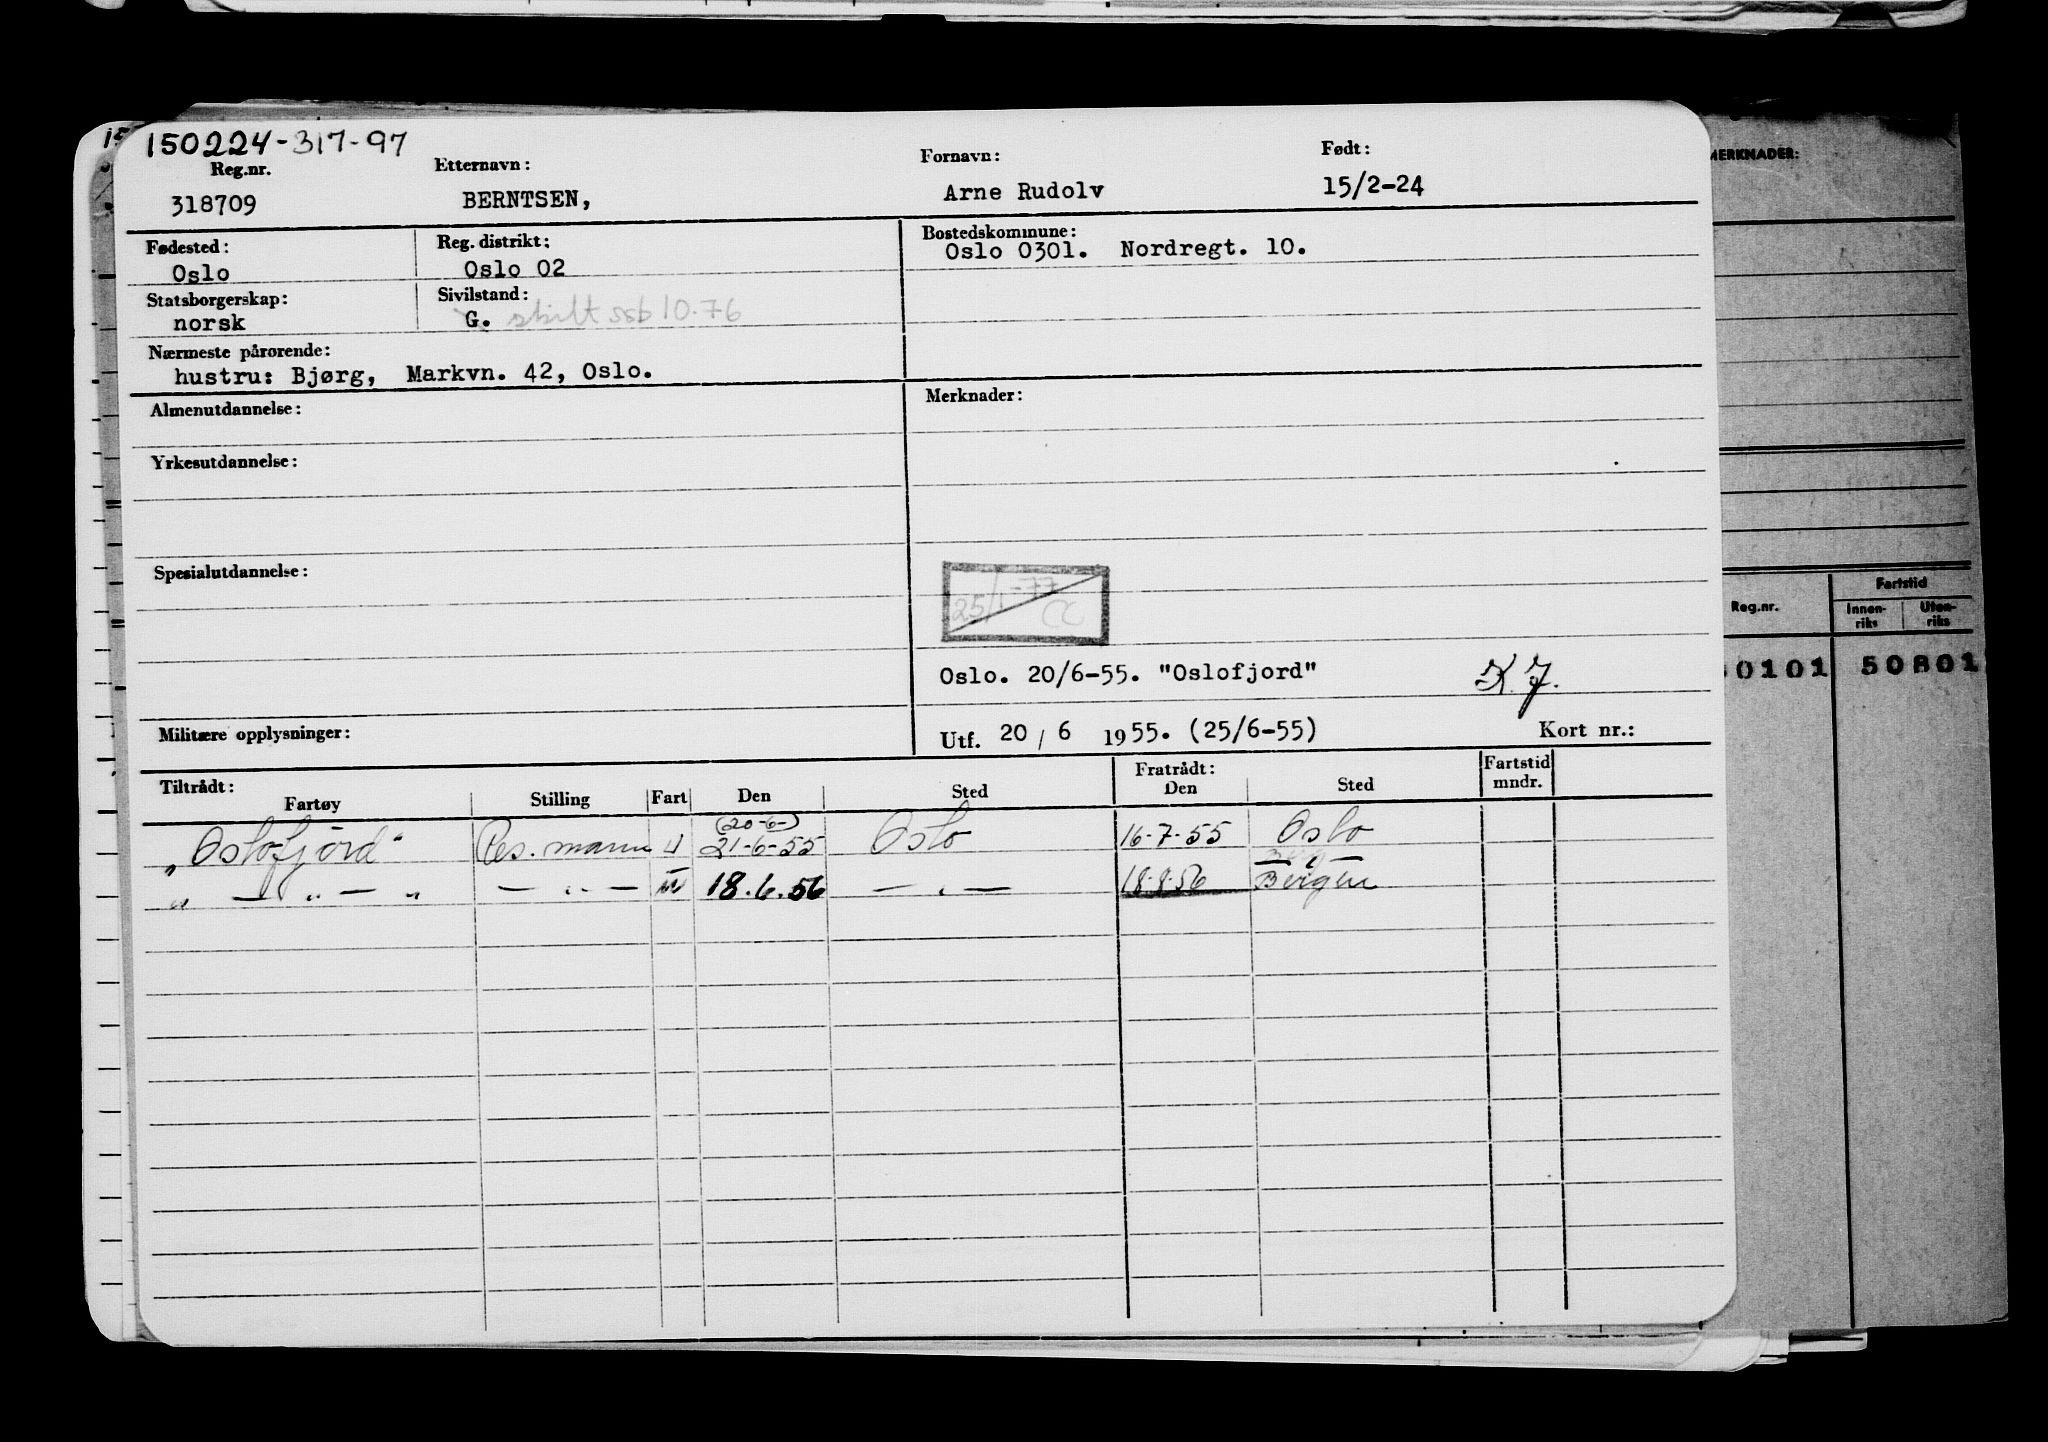 150224-317-97
Reg.nr. Etternavn: Fornavn: Født:
318709 BERNTSEN, Arne Rudolv 15/2-24
Fødested: Reg. distrikt: Bostedskommune:
Oslo Oslo 02 Oslo 0301. Nordregt. 10.
Statsborgerskap: Sivilstand:
norsk G. skilt ssb 10.76
Nærmeste pårørende:
hustru: Bjørg, Markvn. 42, Oslo.
Almenutdannelse: Merknader:
Yrkesutdannelse:
Spesialutdannelse:
25/1-77 CC
Oslo. 20/6-55. "Oslofjord" K.J.
Militære opplysninger: Utf. 20/6 1955. (25/6-55) Kort nr.:
Tiltrådt: Fratrådt: Fartstid mndr.
Fartøy Stilling Fart Den Sted Den Sted
(20-6-)
"Oslofjord" Res. mann U 21-6-55 Oslo 16-7-55 Oslo
" — " — " — " — 18.6.56 — " — 18-8-56 Bergen
MERKNADER:
Reg.nr. Fartstid
Innenriks Utenriks
0101 50801